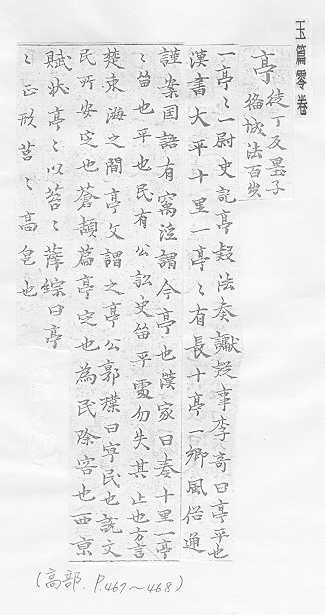 玉篇零卷
亭 徒丁反墨子
指城法百步
一亭〻一尉史記亭疑法奏讞疑事李奇曰亭平也
漢書大平十里一亭〻有長十亭一鄉風俗通
謹案國語有寓法謂今亭也漢家因秦十里一亭
〻留也平也民有公訟史留平處勿失其止也方言
楚東海之間亭父謂之亭公郭璞曰亭民也說文
民所安定也蒼頡篇亭定也為民除害也西京
賦狀亭〻以苕〻薛綜曰亭
〻正形苕〻高皃也
(高部. P.467～468)